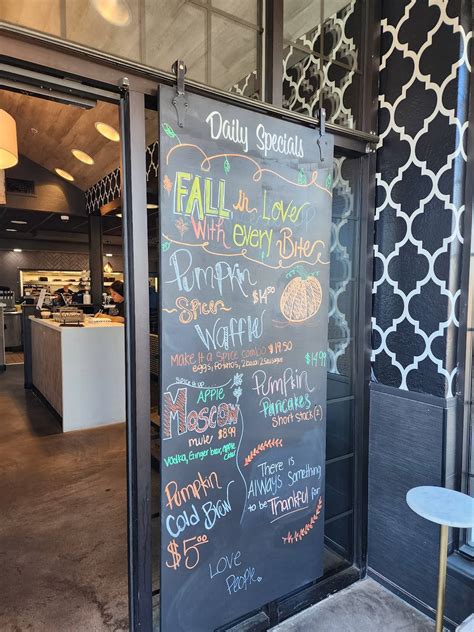 Daily Specials
FALL in Love
With every Bite
Pumpkin
Spice $14.50
Waffle
Make it a Spice combo $19.50
eggs, Potatoes, 2 bacon 2 Sausages
$14.99
Pumpkin
Pancakes
short stack (2)
Spice it up
APPLE
Moscow
mule $8.99
Vodka, Ginger beer, Apple
Cider
There is
Always Something
to be Thankful for
Pumpkin
Cold Brew
$5.00
Love
People.